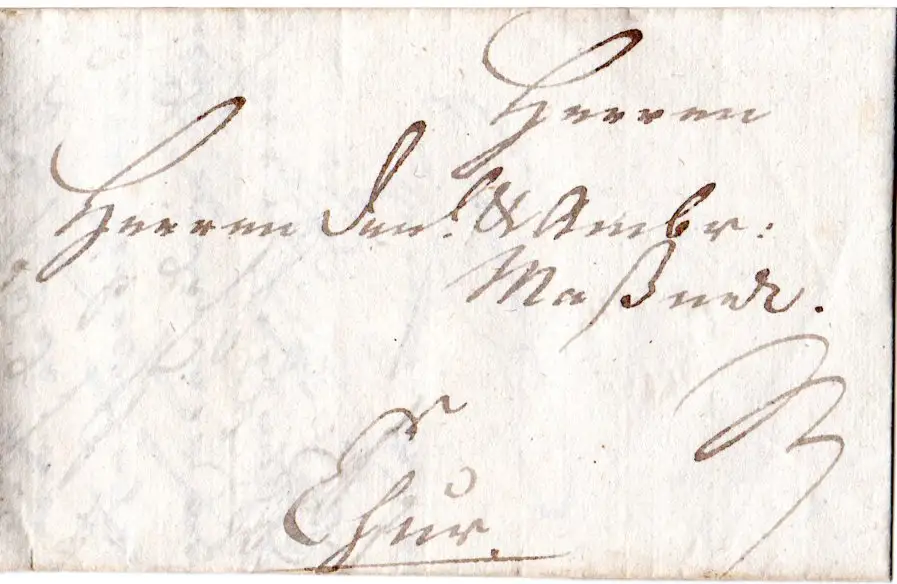 Herren
Herren Dan.l & Ambr:
Maßner.
Chur.